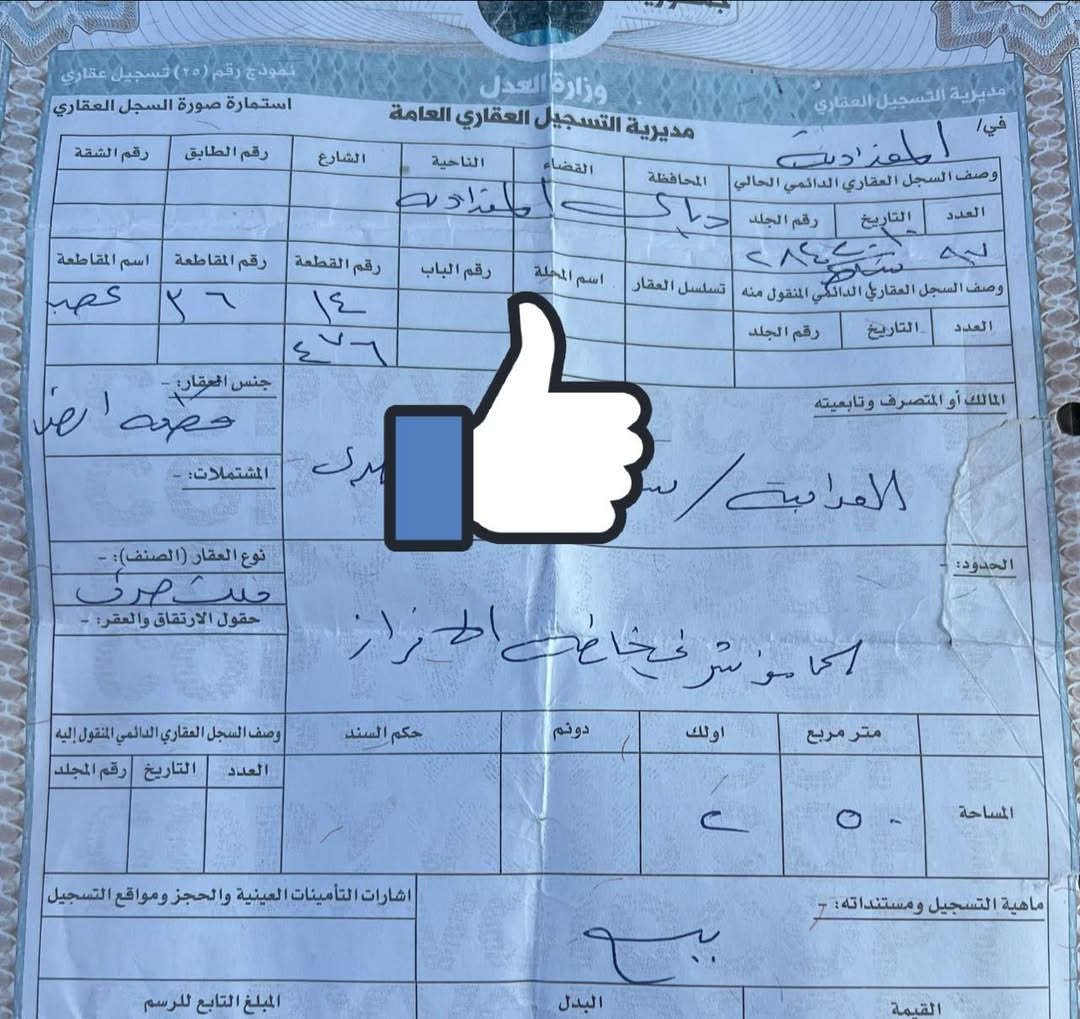 وزارة العدل
مديرية التسجيل العقاري
نموذج رقم (٢٥) تسجيل عقاري
مديرية التسجيل العقاري العامة
استمارة صورة السجل العقاري
في/ المقدادية
وصف السجل العقاري الدائمي الحالي
المحافظة القضاء الناحية الشارع رقم الطابق رقم الشقة
ديالى المقدادية
العدد التاريخ رقم الجلد
٢٨٤
وصف السجل العقاري الدائمي المنقول منه
تسلسل العقار اسم المحلة رقم الباب رقم القطعة رقم المقاطعة اسم المقاطعة
١٤ ٣٦
العدد التاريخ رقم الجلد
٤٧٦
المالك أو المتصرف وتابعيته
جنس العقار: -
قطعة ارض
العراقية /
المشتملات: -
الحدود: -
نوع العقار (الصنف): -
ملك صرف
حقول الارتقاق والعقر: -
كما مؤشر في خارطة الافراز
متر مربع اولك دونم حكم السند وصف السجل العقاري الدائمي المنقول إليه
العدد التاريخ رقم المجلد
المساحة
٥٠ ٢
ماهية التسجيل ومستنداته: -
اشارات التأمينات العينية والحجز ومواقع التسجيل
بيع
القيمة البدل المبلغ التابع للرسم